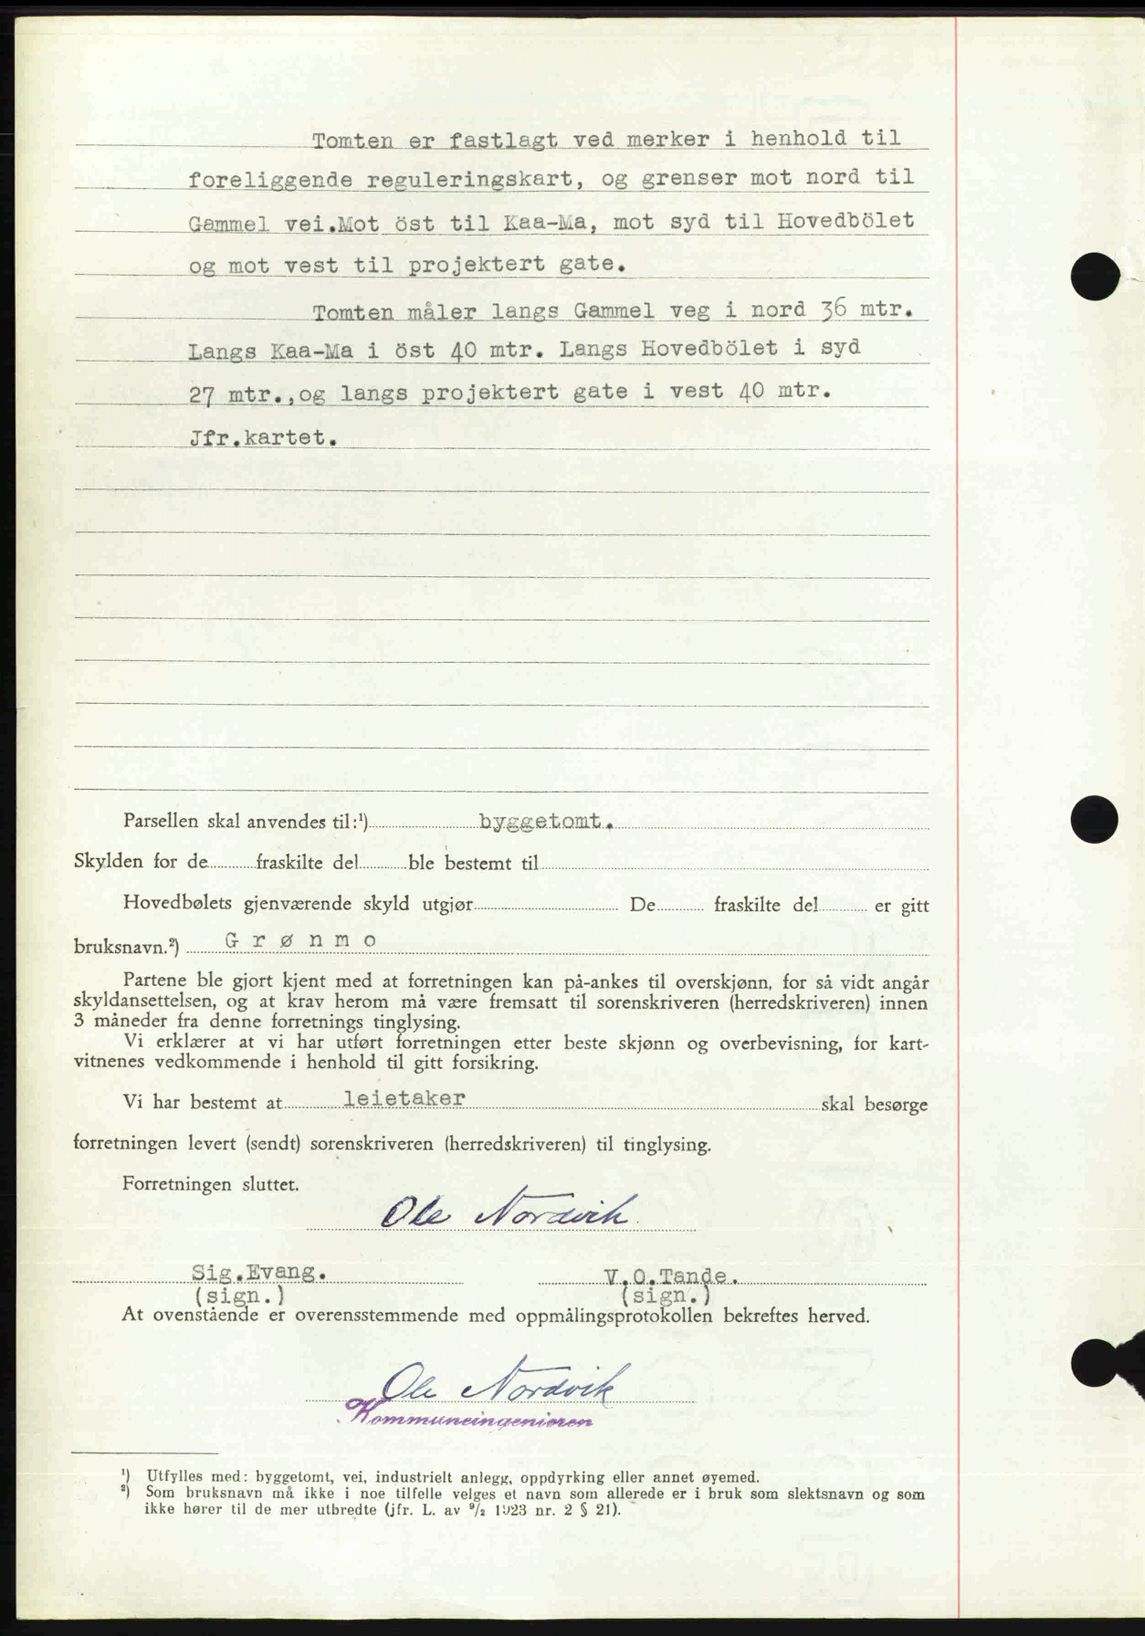 Tomten er fastlagt ved merker i henhold til
foreliggende reguleringskart, og grenser mot nord til
Gammel vei.Mot öst til Kaa-Ma, mot syd til Hovedbölet
og mot vest til projektert gate.
Tomten måler langs Gammel veg i nord 36 mtr.
Langs Kaa-Ma i öst 40 mtr. Langs Hovedbölet i syd
27 mtr.,og langs projektert gate i vest 40 mtr.
Jfr.kartet.
Parsellen skal anvendes til:¹) byggetomt.
Skylden for de fraskilte del ble bestemt til
Hovedbølets gjenværende skyld utgjør De fraskilte del er gitt
bruksnavn.²) G r ø n m o
Partene ble gjort kjent med at forretningen kan på-ankes til overskjønn, for så vidt angår
skyldansettelsen, og at krav herom må være fremsatt til sorenskriveren (herredskriveren) innen
3 måneder fra denne forretnings tinglysing.
Vi erklærer at vi har utført forretningen etter beste skjønn og overbevisning, for kart-
vitnenes vedkommende i henhold til gitt forsikring.
Vi har bestemt at leietaker skal besørge
forretningen levert (sendt) sorenskriveren (herredskriveren) til tinglysing.
Forretningen sluttet.
Ole Nordvik
Sig.Evang. V.O.Tande.
(sign.) (sign.)
At ovenstående er overensstemmende med oppmålingsprotokollen bekreftes herved.
Ole Nordvik
Kommuneingeniøren
¹) Utfylles med: byggetomt, vei, industrielt anlegg, oppdyrking eller annet øyemed.
²) Som bruksnavn må ikke i noe tilfelle velges et navn som allerede er i bruk som slektsnavn og som
ikke hører til de mer utbredte (jfr. L. av ⁹/₂ 1923 nr. 2 § 21).